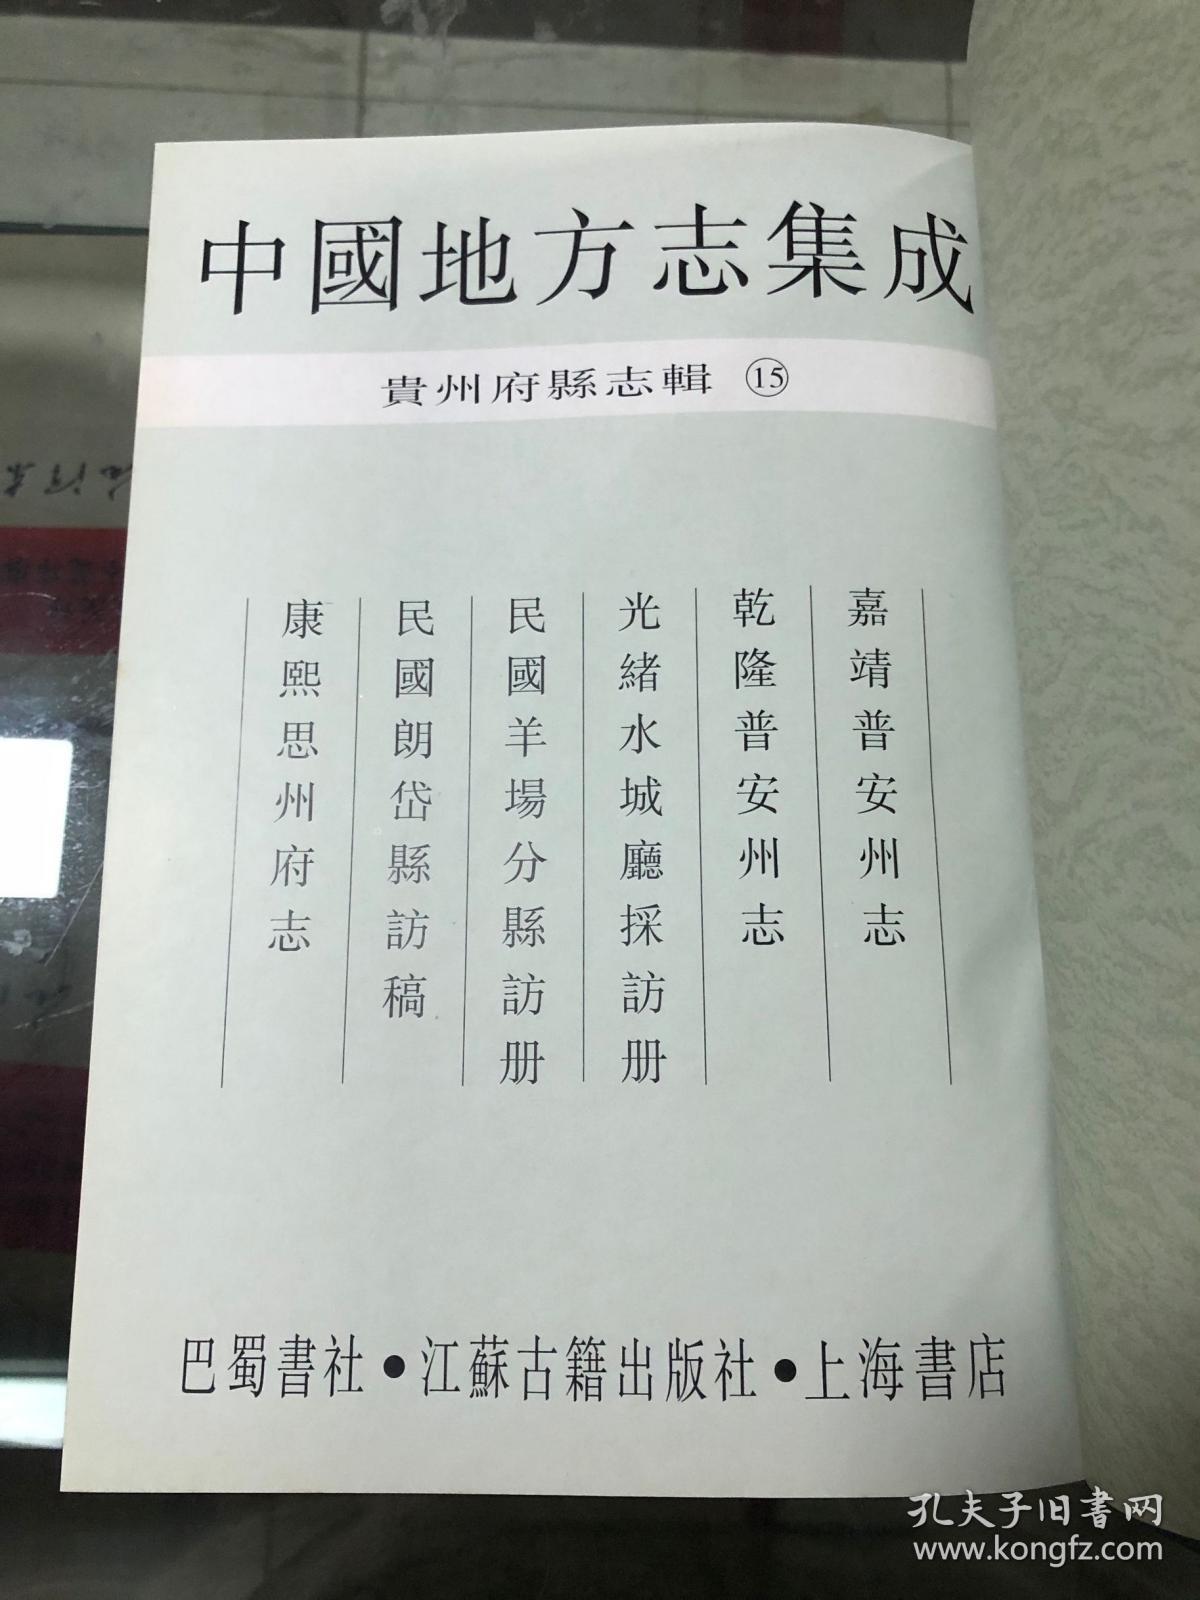 中國地方志集成
貴州府縣志輯 ⑮
嘉靖普安州志
乾隆普安州志
光緒水城廳採訪册
民國羊場分縣訪册
民國朗岱縣訪稿
康熙思州府志
巴蜀書社●江蘇古籍出版社●上海書店
孔夫子旧书网
www.kongfz.com